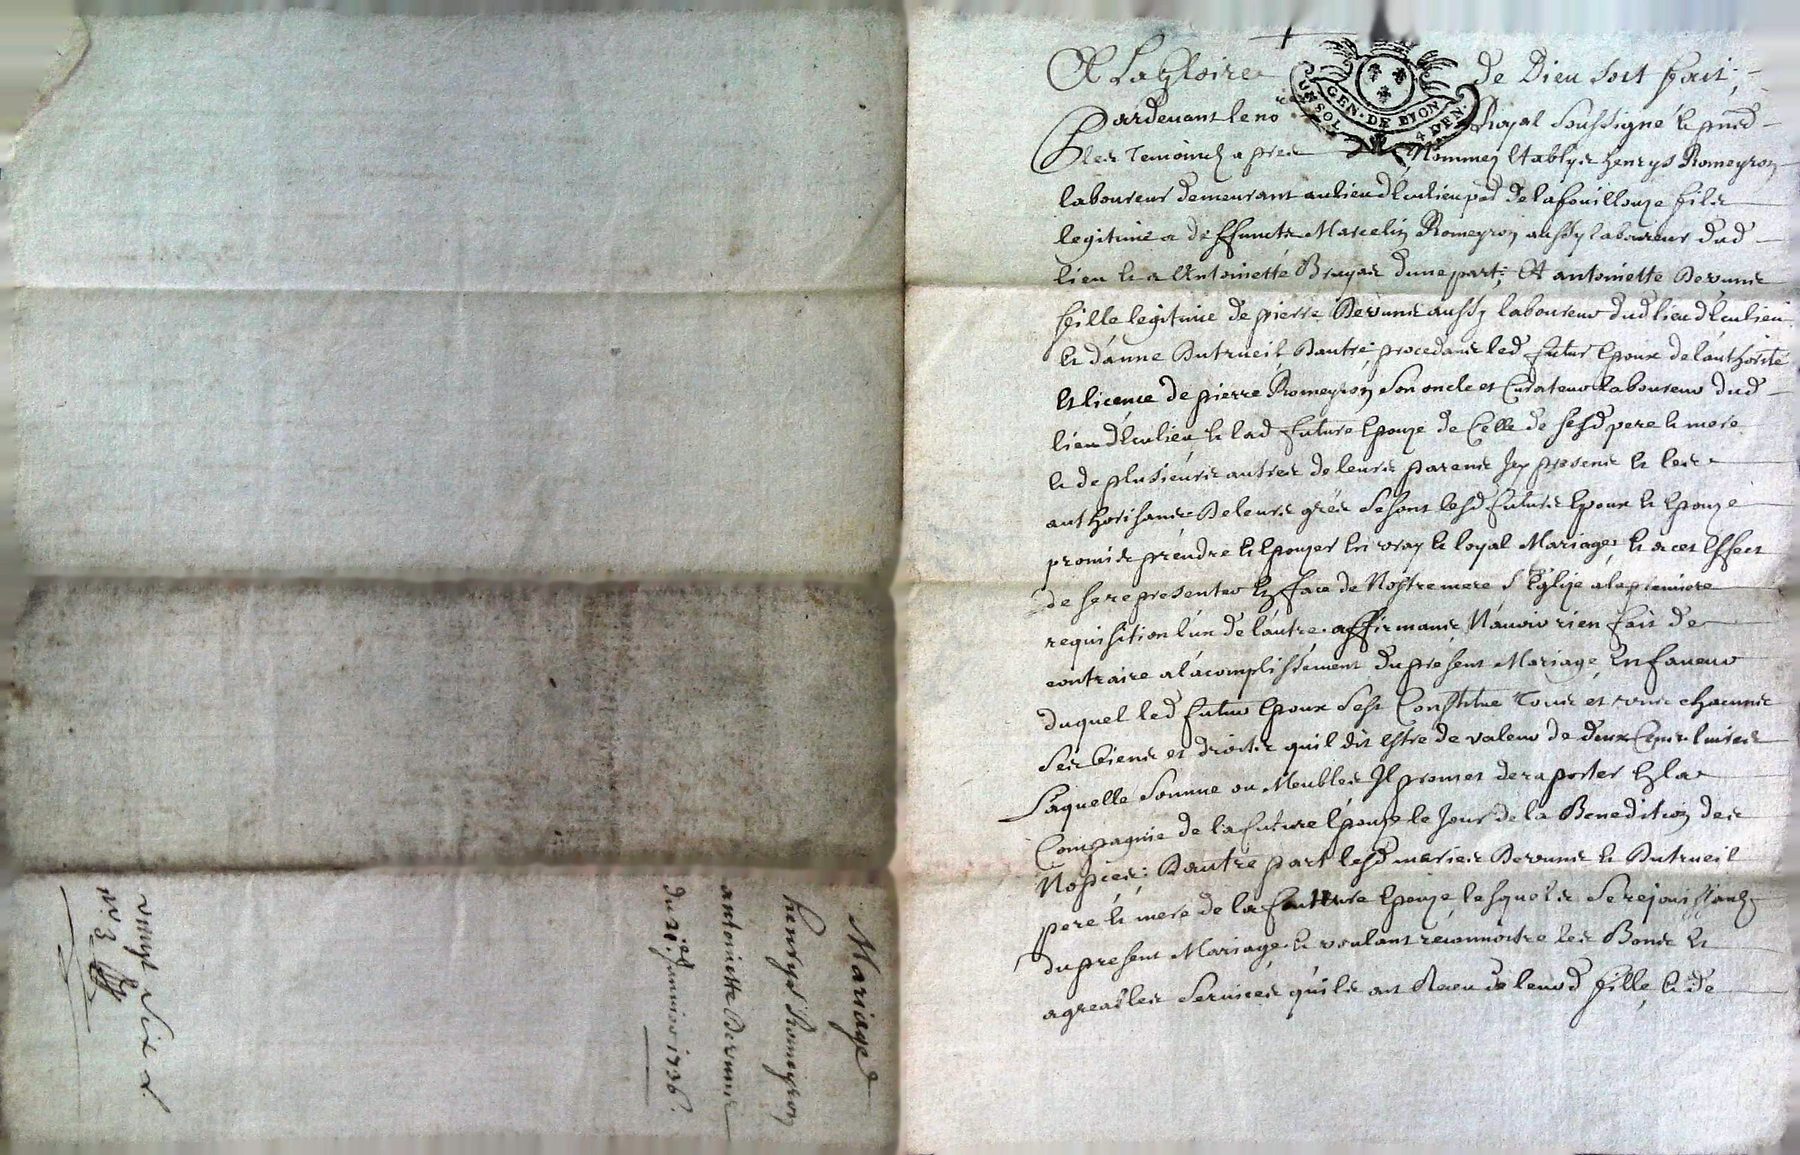 A La gloire de Dieu soit fait,
GEN. DE DION
UN SOL 4 DEN.
Pardevant le no.re Royal soussigné et pnts
les Temoins apres Nommez Establys henrys Romeyron
laboureur demeurant au lieu de la fouillouze fils
legitime a deffuncts Marcelin Romeyron aussy laboureur dud
lieu et a Antoinette d'une part; Et antoinette
fille legitime de pierre aussy laboureur dud lieu
et d'anne Dutrueil Dautre; procedants led futur Epoux de l'authorité
et licence de pierre Romeyron son oncle et Curateur laboureur dud
lieu et lad future Epouze de Celle de sesd pere et mere
et de plusieurs autres de leurs parents Icy presents et les
authorisants De leurs grés se sont lesd futurs Epoux et Epouze
promis prendre et Epouzer En vray et loyal Mariage, et a cet Effect
de se representer En face de Nostre mere S.te Eglize a la premiere
requisition l'un de l'autre affirmants N'avoir rien fait de
contraire a l'acomplissement du present Mariage, En faveur
duquel led futur Epoux s'est Constitué Tous et uns chacuns
ses biens et droits qu'il dit Estre de valeur de deux Cents livres
Laquelle somme ou Meubles Il promet de raporter En la
Compagnie de la future Epouze le Jour de la Benedition des
Nopces; Dautre part lesd mariés et Dutrueil
pere et mere de la future Epouze lesquels se rejouissants
du present Mariage et voulant reconnoitre les Bons et
agreables Services qu'ils ont Receu de leurd fille, et de
Mariage d
henrys Romeyron
antoinette
du janvier 1736.
vingt six